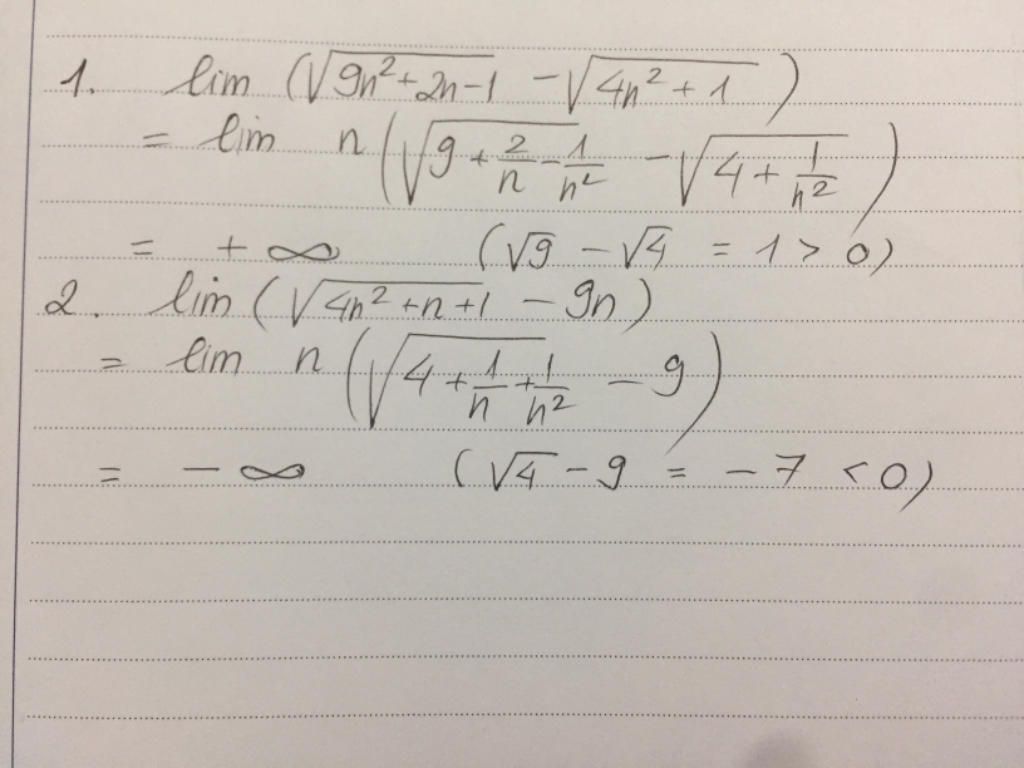 1. lim (√(9n²+2n-1) - √(4n²+1))
= lim n(√(9+2/n-1/n²) - √(4+1/n²))
= +∞ (√9 - √4 = 1 > 0)
2. lim (√(4n²+n+1) - 9n)
= lim n(√(4+1/n+1/n²) - 9)
= -∞ (√4 - 9 = -7 < 0)